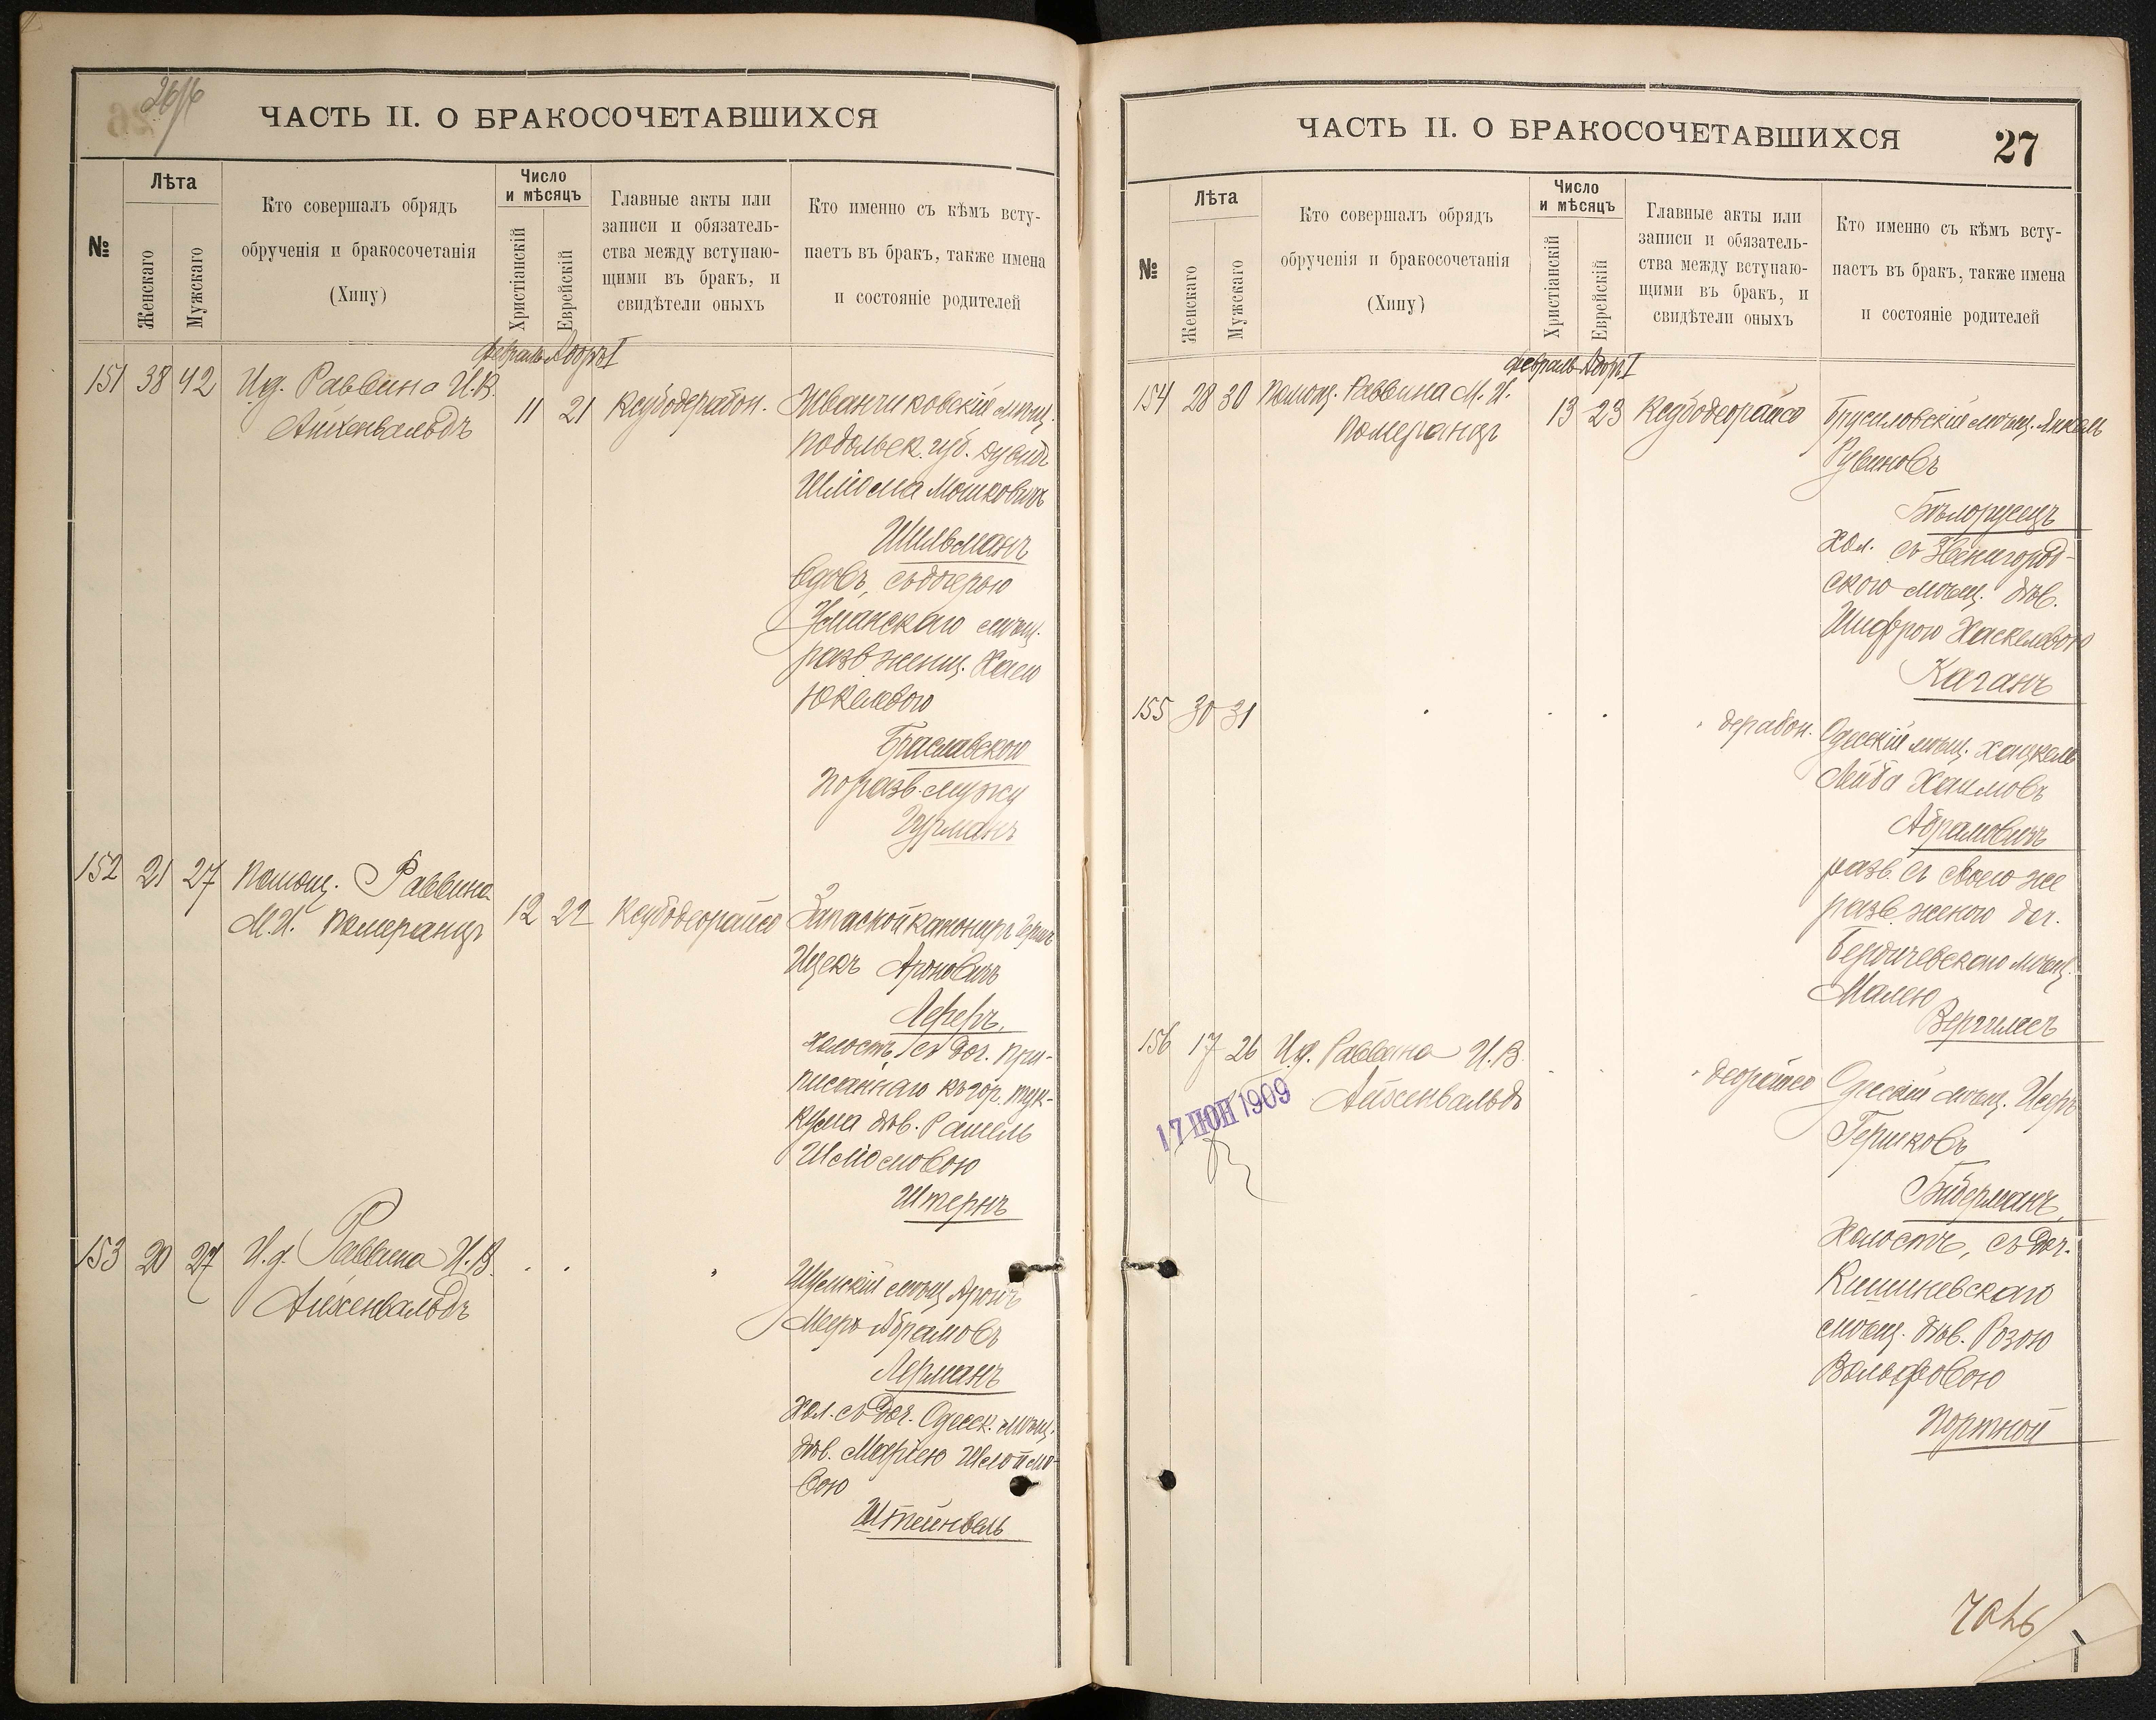 26/б
ЧАСТЬ II. О БРАКОСОЧЕТАВШИХСЯ
№
Лѣта
Женскаго
Мужскаго
Кто совершалъ обрядъ
обрученія и бракосочетанія
(Хипу)
Число
и мѣсяцъ
Христіанскій
Еврейскій
Главные акты или
записи и обязатель-
ства между вступаю-
щими въ бракъ, и
свидѣтели оныхъ
Кто именно съ кѣмъ всту-
паетъ въ бракъ, также имена
и состояніе родителей
Февраль Адоръ I
151 38 42 И.д. Раввина И.В.
Айзенвальдъ
11 21 Ксубодерабон.
Жванчиковскій мѣщ.
Подольск. губ. Дувидъ
Шліома Мошковичъ
Шильманъ
вдовъ, съ дочерью
Уманскаго мѣщ.
разв женщ. Хаею
Юкелевою
Браславскою
по разв. мужу
Гурманъ
152 21 27 Помощ. Раввина
М.И. Померанцъ
12 22 Ксубодеорайсо
Запасной канониръ Гершъ
Ицекъ Ароновичъ
Леферъ,
холостъ, съ доч. при-
писаннаго къ гор. Тук-
кума дѣв. Рашель
Шліомовою
Штернъ
153 20 27 И.д. Раввина И.В.
Айзенвальдъ
мѣщ Аронъ
Мееръ Абрамовъ
Лерманъ
хол. съ доч. Одесск. мѣщ.
дѣв. Маріею Шлоймо-
вою
Штейнвель
ЧАСТЬ II. О БРАКОСОЧЕТАВШИХСЯ
27
№
Лѣта
Женскаго
Мужскаго
Кто совершалъ обрядъ
обрученія и бракосочетанія
(Хипу)
Число
и мѣсяцъ
Христіанскій
Еврейскій
Главные акты или
записи и обязатель-
ства между вступаю-
щими въ бракъ, и
свидѣтели оныхъ
Кто именно съ кѣмъ всту-
паетъ въ бракъ, также имена
и состояніе родителей
Февраль Адоръ I
154 28 30 Помощ. Раввина М.И.
Померанцъ
13 23 Ксубодеорайсо
Брусиловскій мѣщ. Янкель
Рувиновъ
Бѣлорусецъ
хол. съ Звенигород-
ского мѣщ. дѣв.
Шифрою Хаскелевою
Каганъ
155 30 31
дерабон.
Одесскій мѣщ. Хацкель
Лейба Хаимовъ
Абрамовичъ
разв. съ своею же
разв. женою доч.
Бердичевскаго мѣщ.
Малею
Вергилесъ
156 17 26 И.д. Раввина И.В.
Айзенвальдъ
деорайсо
17 ІЮН 1909
Одесскій мѣщ. Іосфъ
Гершковъ
Бидерманъ,
Холостъ, съ доч.
Кишиневскаго
мѣщ. дѣв. Розою
Вольфовою
Портной